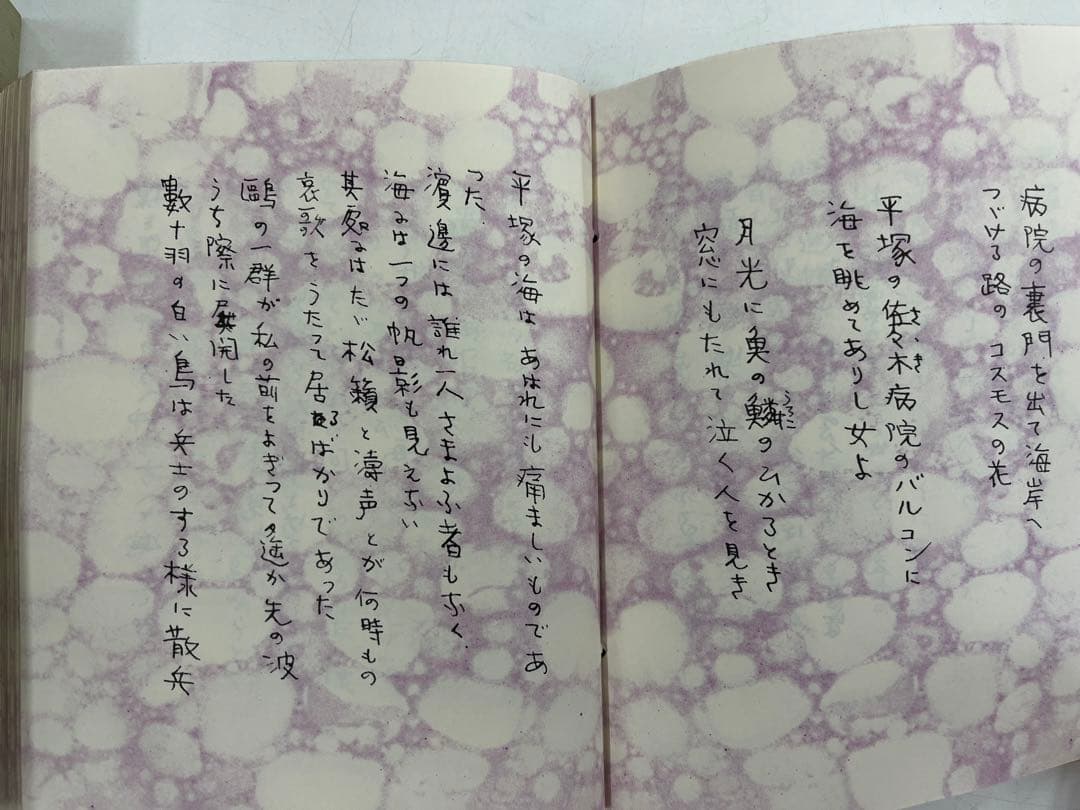 病院の裏門を出て海岸へ
つゞける路のコスモスの花
平塚の佐々木病院のバルコンに
さゝき
海を眺めてありし女よ
月光に魚の鱗のひかるとき
うろこ
窓にもたれて泣く人を見き
平塚の海は あはれにも痛ましいものであ
つた
濱邊には誰れ一人さまよふ者もなく
海には一つの帆影も見えない
其處にはたゞ松籟と濤声とが何時もの
哀歌をうたつて居るばかりであつた
鷗の一群が私の前をよぎつて遙か先の波
うち際に展開した
數十羽の白い鳥は兵士のする様に散兵